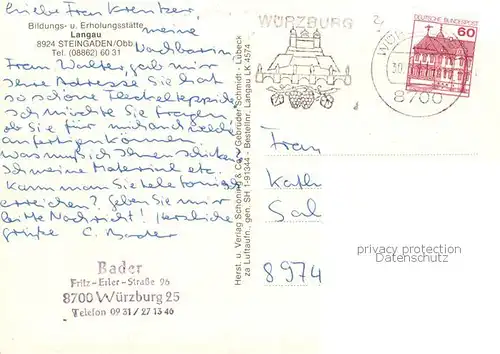 Liebe Frau Kreutzer
Bildungs- u. Erholungsstätte
Langau
8924 STEINGADEN/Obb.
Tel. (08862) 60 31
meine
Nachbarin
Frau Walter gab mir
ihre Adresse Sie hat
so schöne Fleckelteppiche
ich möchte Sie fragen
ob Sie für mich auch welche
anfertigen können
was muß ich Ihnen schicken
ich meine Material etc.
Kann man Sie telefonisch
erreichen? Geben Sie mir
bitte Nachricht! Herzliche
Grüße C. Bader
Bader
Fritz-Erler-Straße 26
8700 Würzburg 25
Telefon 09 31 / 27 13 46
Herst. u. Verlag Schöning & Co + Gebrüder Schmidt - Lübeck
za Luftaufn., gen. SH 1-91344 - Bestellnr. Langau LK 4574
WÜRZBURG
DEUTSCHE BUNDESPOST
60
30.
8700
Frau
Kath
Sal
8974
privacy protection
Datenschutz